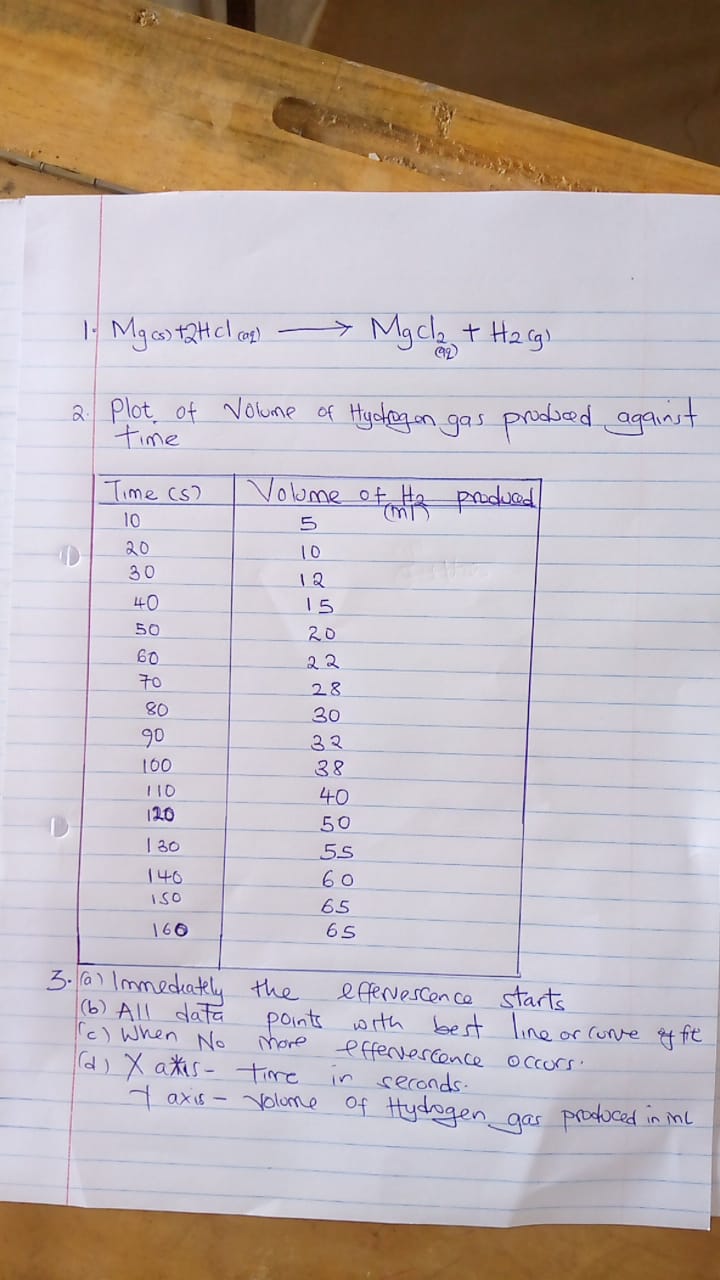 1. Mg(s) + 2HCl (aq) → MgCl2 (aq) + H2 (g)
2. Plot of Volume of Hydrogen gas produced against
time
Time (s) Volume of H2 produced (ml)
10 5
20 10
30 12
40 15
50 20
60 22
70 28
80 30
90 32
100 38
110 40
120 50
130 55
140 60
150 65
160 65
3. (a) Immediately the effervescence starts
(b) All data points with best line or curve of fit
(c) When No more effervescence occurs.
(d) X axis - time in seconds.
Y axis - Volume of Hydrogen gas produced in ml